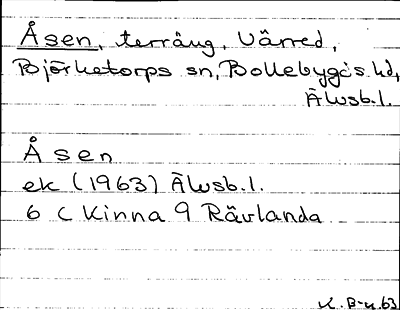 Åsen, terräng, Vänred,
Björketorps sn, Bollebygds hd,
Älvsb. l.
Åsen
ek (1963) Älvsb. l.
6 C Kinna 9 Rävlanda
K. B-n. 63